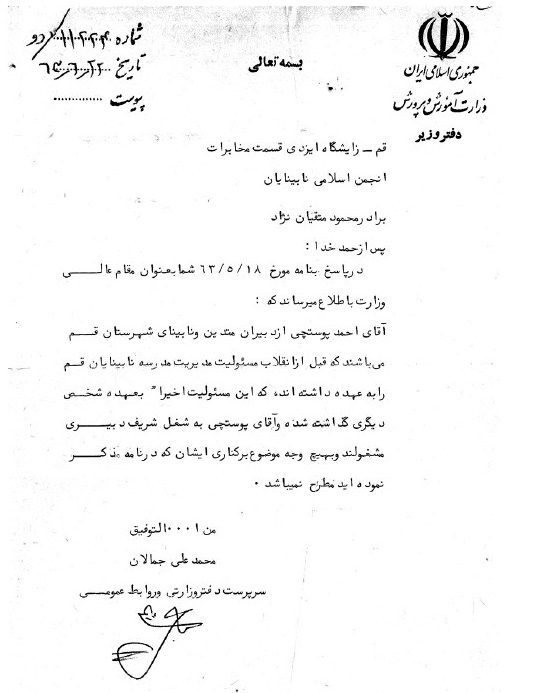 بسمه تعالی
جمهوری اسلامی ایران
وزارت آموزش و پرورش
دفتر وزیر
شماره
تاریخ
پیوست
قم ــ زایشگاه ایزدی قسمت مخابرات
انجمن اسلامی نابینایان
برادر محمود متقیان نژاد
پس از حمد خدا :
در پاسخ بنامه مورخ ۶۳/۵/۱۸ شما بعنوان مقام عالـــی
وزارت باطلاع میرساند که :
آقای احمد پوستچی از دبیران متدین ونابینای شهرستان قــم
می باشند که قبل از انقلاب مسئولیت مدیریت مدرسه نابینایان قــم
را به عهده داشته اند، که این مسئولیت اخیرا" بعهده شخص
دیگری گذاشته شده وآقای پوستچی به شغل شریف دبیــری
مشغولند وبهیچ وجه موضوع برکناری ایشان که درنامه ذکــر
نموده اید مطرح نمیباشد .
من ا۰۰۰ التوفیق
محمد علی جمالان
سرپرست دفتر وزارتی وروابط عمومــی